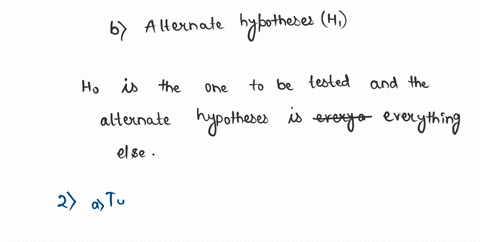 b) Alternate hypotheses (H₁)
H₀ is the one to be tested and the
alternate hypotheses is everyo everything
else.
2) a) Tu